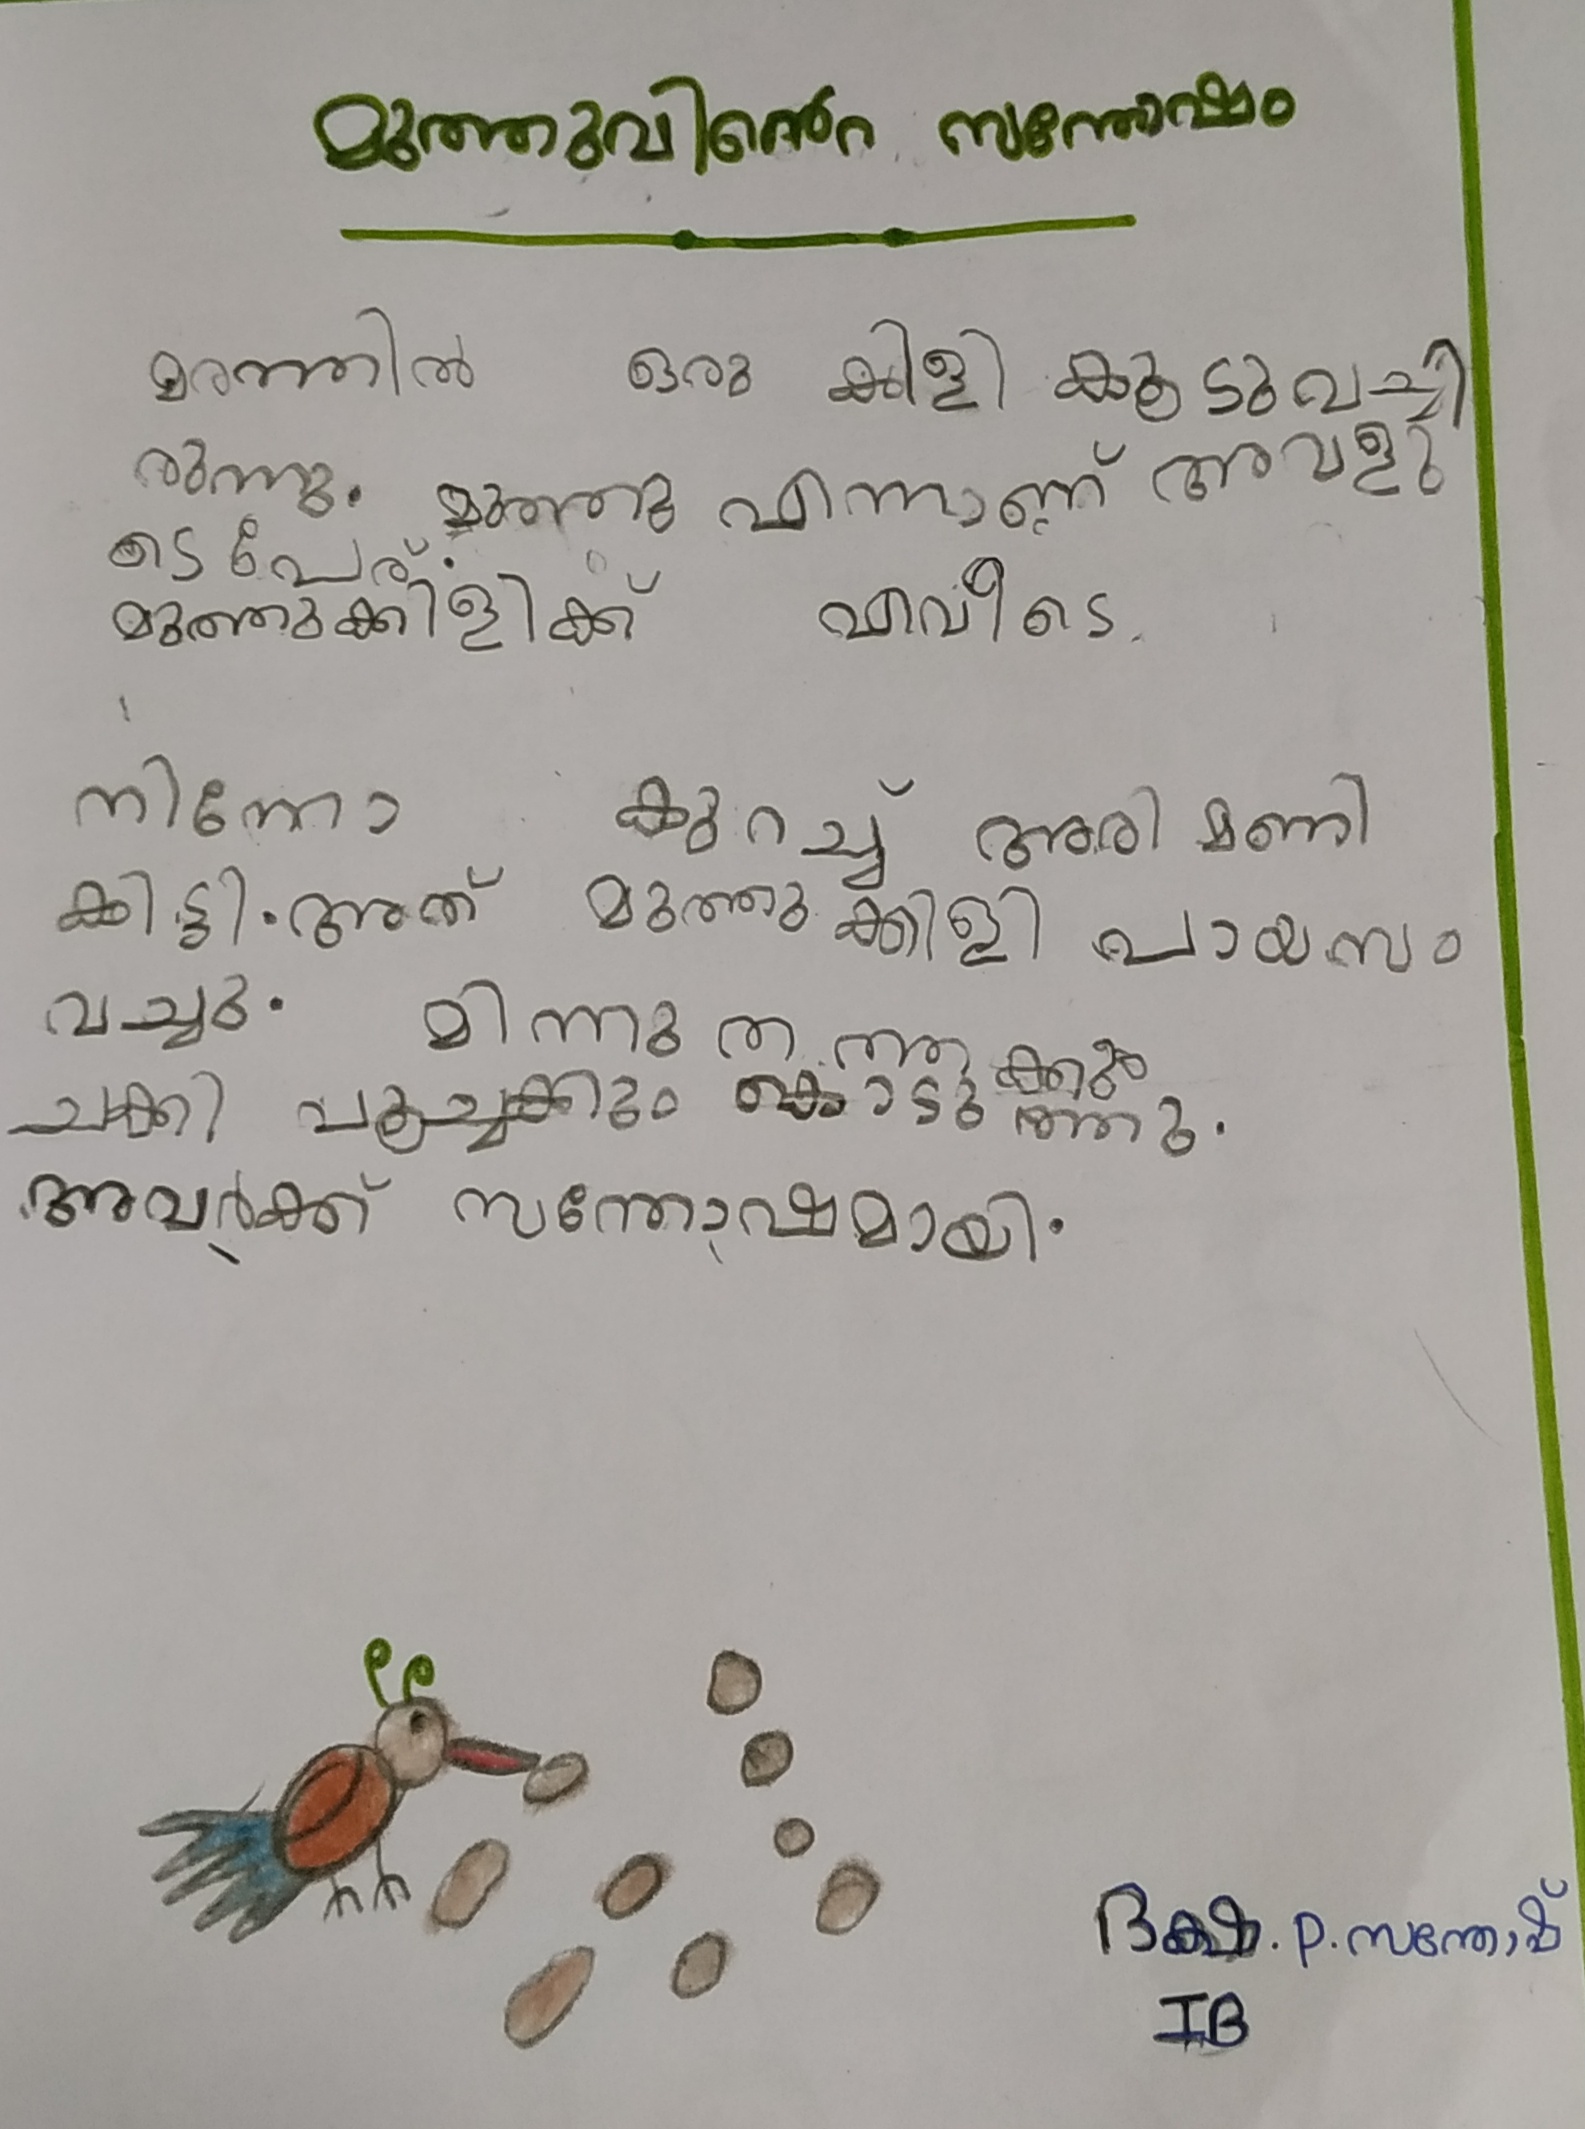 മുത്തുവിൻെറ സന്തോഷം
മരത്തിൽ ഒരു കിളി കൂടുവച്ചി
രുന്നു. മുത്തു എന്നാണ് അവളു
ടെ പേര്.
മുത്തുക്കിളിക്ക് എവീടെ
നിന്നോ കുറച്ച് അരി മണി
കിട്ടി. അത് മുത്തു ക്കിളി പായസം
വച്ചു. മിന്നു ത ത്ത ക്കും
ചക്കി പൂച്ചക്കും കൊടു ത്തു.
അവർക്ക് സന്തോഷമായി.
ദക്ഷ. P. സന്തോഷ്
IB